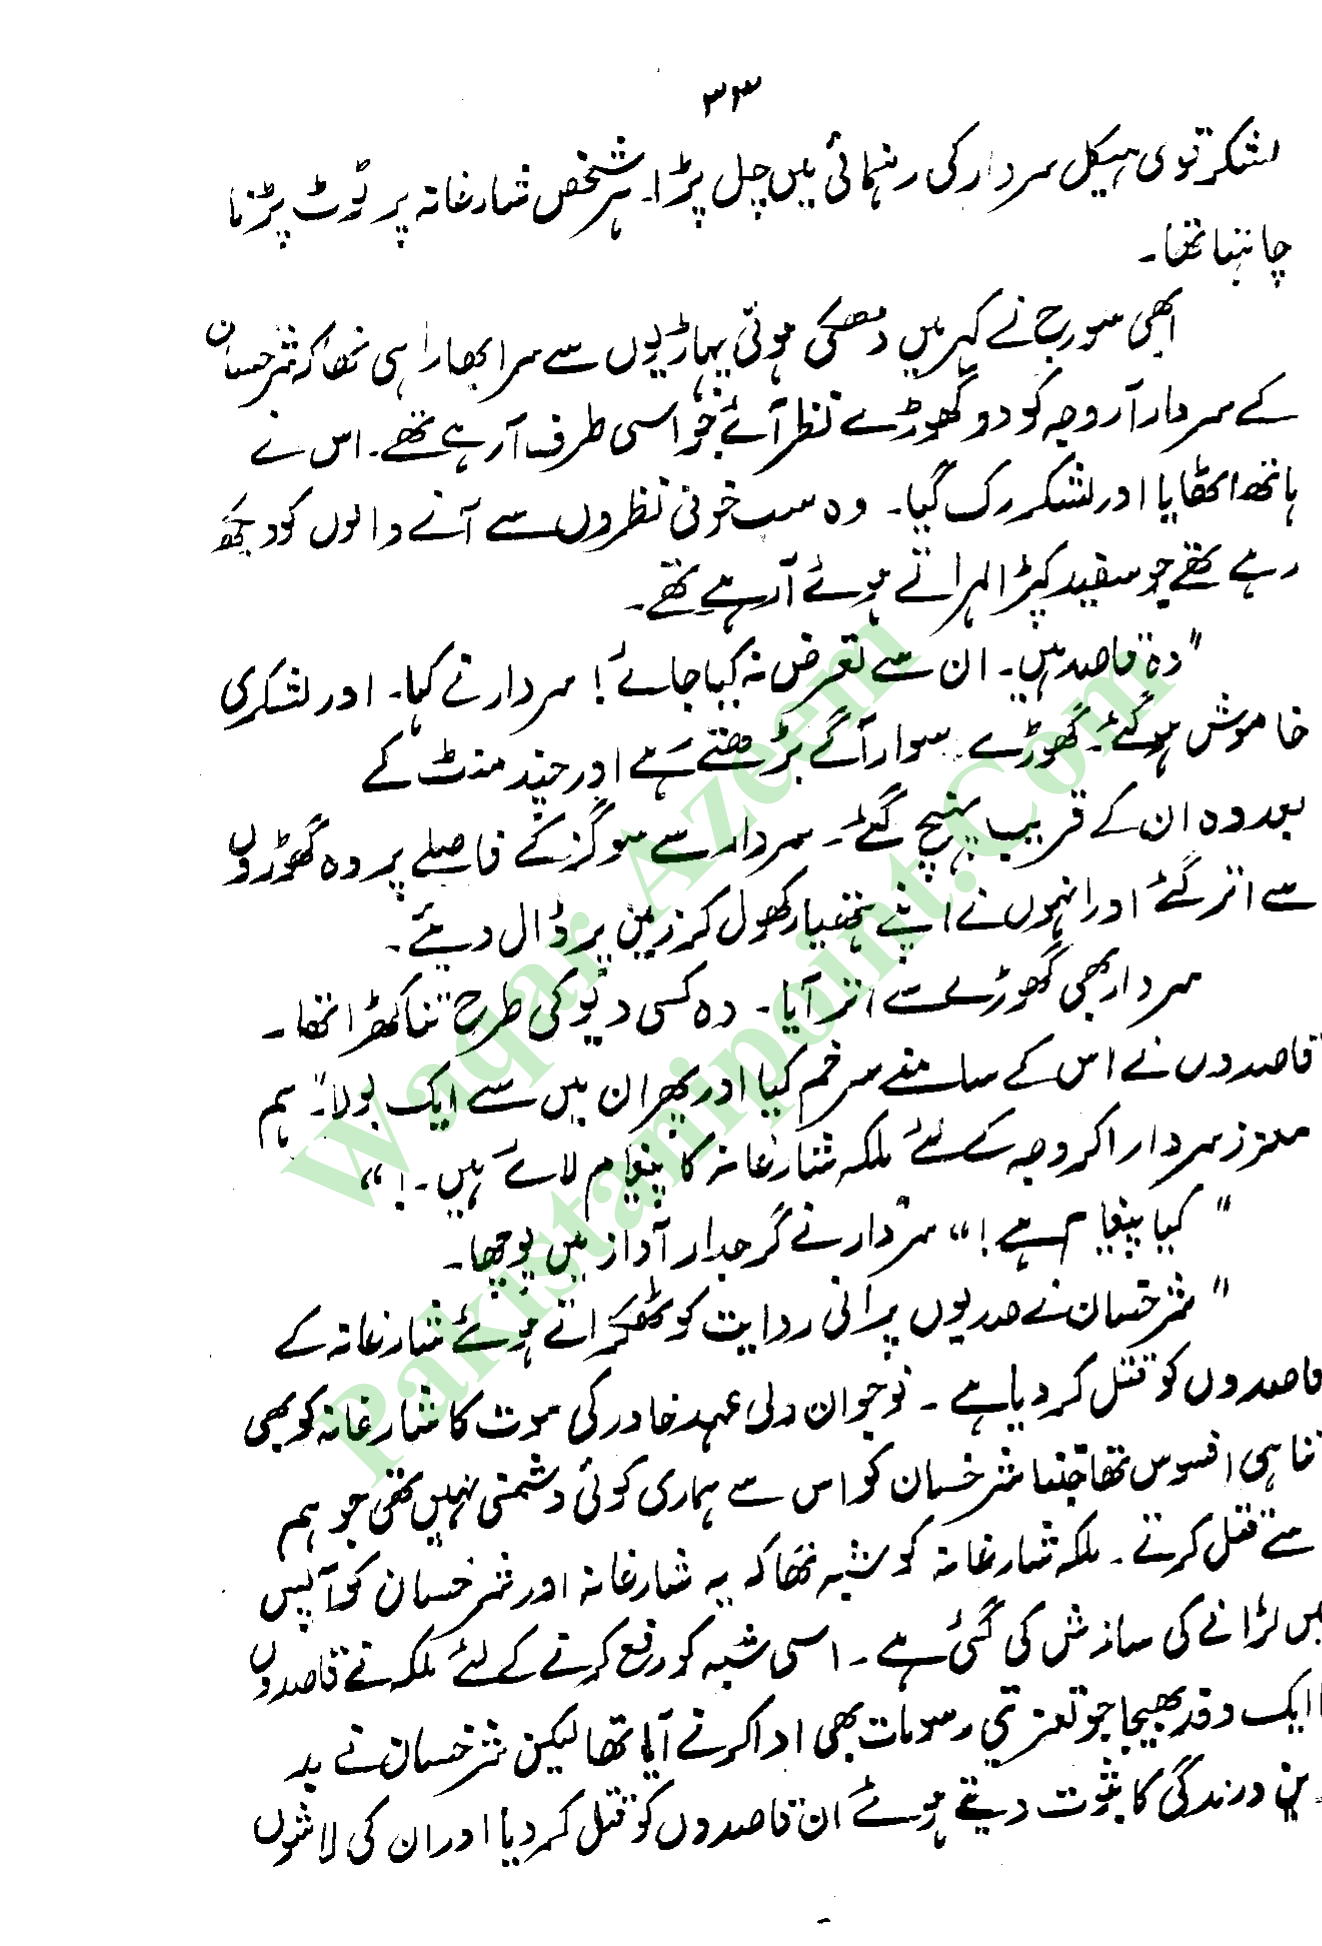 ۳۳
لشکر قوی ہیکل سردار کی رہنمائی میں چل پڑا۔ ہر شخص شارغانہ پر ٹوٹ پڑنا
چاہتا تھا۔
ابھی سورج نے کہر میں ڈھکی ہوئی پہاڑیوں سے سر ابھارا ہی تھا کہ شرخسان
کے سردار آروچہ کو دو گھوڑے نظر آئے جو اسی طرف آرہے تھے۔ اس نے
ہاتھ اٹھایا اور لشکر رک گیا۔ وہ سب خونی نظروں سے آنے والوں کو دیکھ
رہے تھے جو سفید کپڑا لہراتے ہوئے آرہے تھے۔
"وہ قاصد ہیں۔ ان سے تعرض نہ کیا جائے! سردار نے کہا۔ اور لشکری
خاموش ہوگئے۔ گھوڑے سوار آگے بڑھتے رہے اور چند منٹ کے
بعد وہ ان کے قریب پہنچ گئے۔ سردار سے سو گز کے فاصلے پر وہ گھوڑوں
سے اتر گئے اور انہوں نے اپنے ہتھیار کھول کر زمین پر ڈال دیئے۔
سردار بھی گھوڑے سے اتر آیا۔ وہ کسی دیو کی طرح تنا کھڑا تھا۔
قاصدوں نے اس کے سامنے سرخم کیا اور پھر ان میں سے ایک بولا۔ "ہم
معزز سردار اکروچہ کے لئے ملکہ شارغانہ کا پیغام لائے ہیں۔!"
"کیا پیغام ہے!" سردار نے گرجدار آواز میں پوچھا۔
"شرخسان نے صدیوں پرانی روایت کو ٹھکراتے ہوئے شارغانہ کے
قاصدوں کو قتل کر دیا ہے۔ نوجوان ولی عہد خادر کی موت کا شارغانہ کو بھی
تنا ہی افسوس تھا جتنا شرخسان کو اس سے ہماری کوئی دشمنی نہیں تھی جو ہم
سے قتل کرتے۔ ملکہ شارغانہ کو شبہ تھا کہ یہ شارغانہ اور شرخسان کو آپس
میں لڑانے کی سازش کی گئی ہے۔ اسی شبہ کو رفع کرنے کے لئے ملکہ نے قاصدوں
ا ایک وفد بھیجا جو تعزیتی رسومات بھی ادا کرنے آیا تھا لیکن شرخسان نے بد
ین درندگی کا ثبوت دیتے ہوئے ان قاصدوں کو قتل کر دیا اور ان کی لاشوں
Waqar Azeem
Pakistanipoint.Com